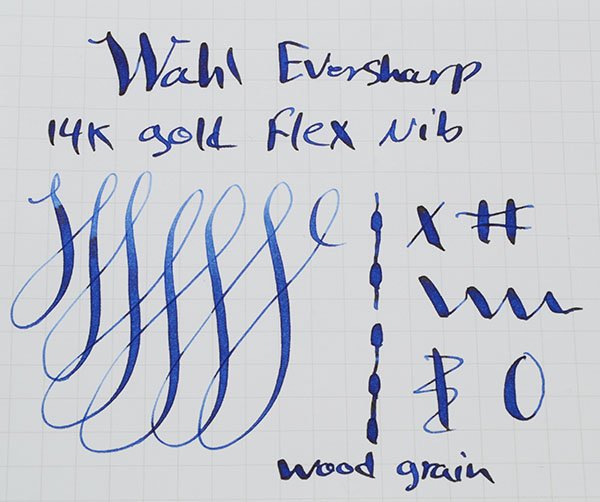 Wahl Eversharp
14K gold Flex Nib
X #
wood grain